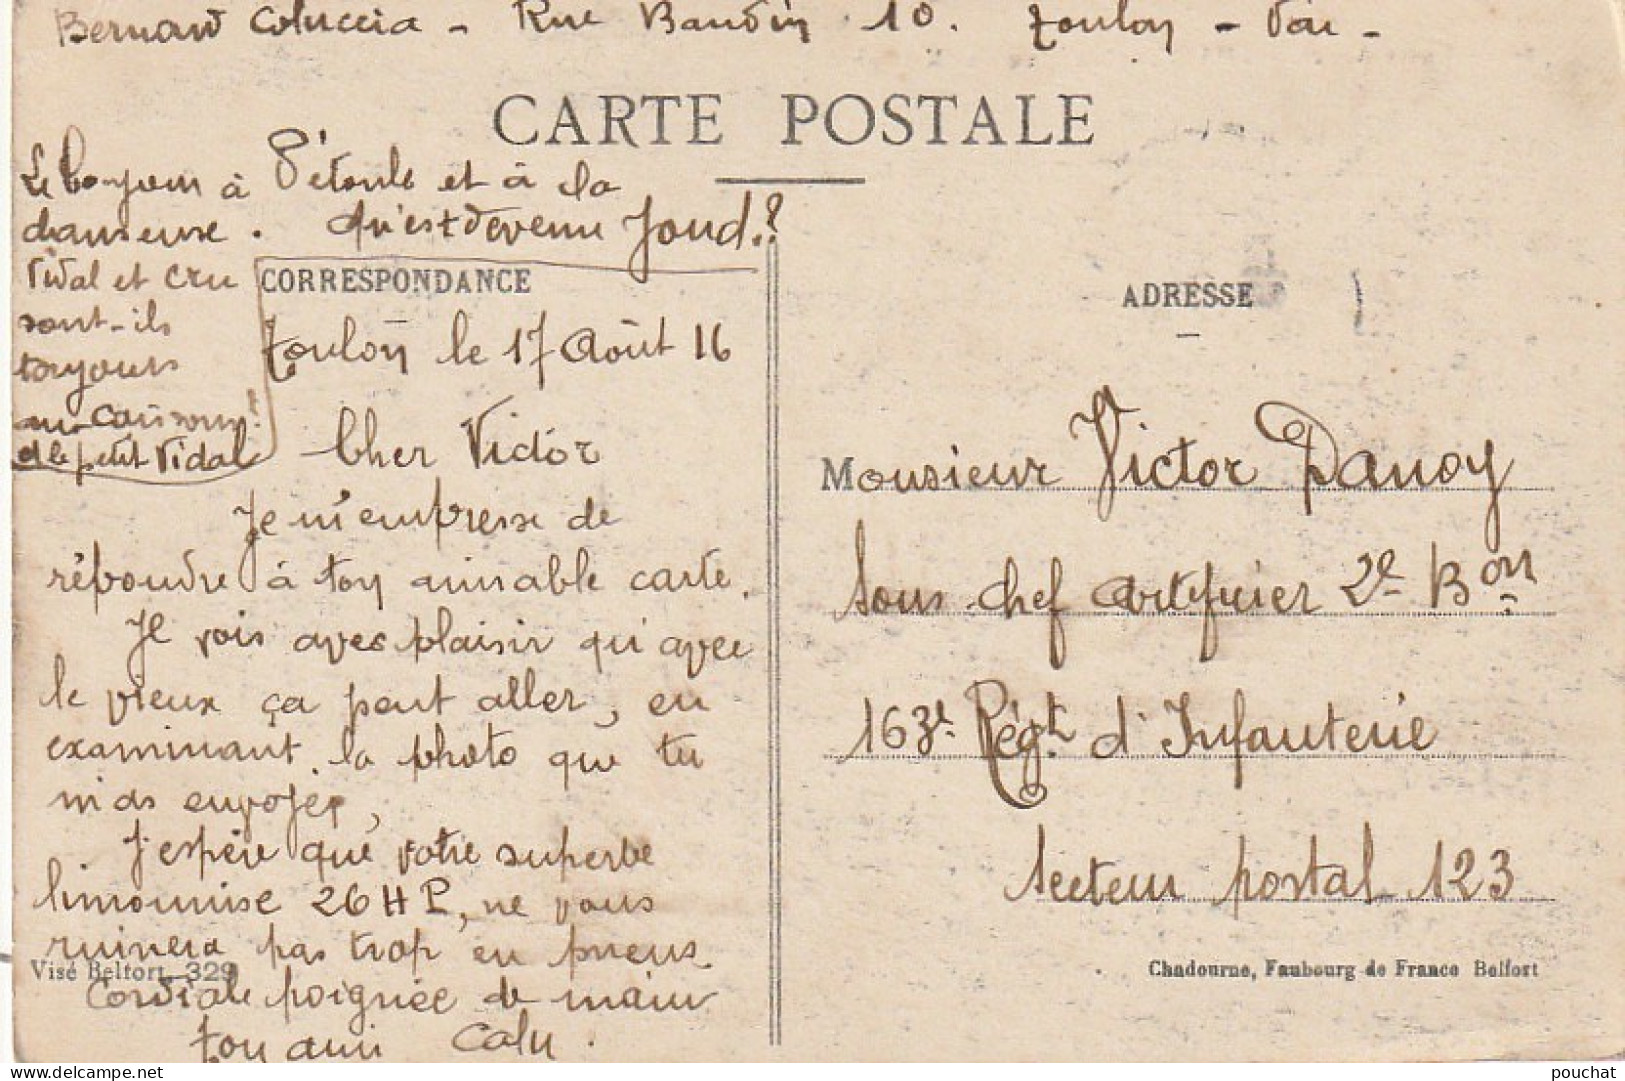 Bernard Coluccia - Rue Baudin 10. Toulon - Var -
CARTE POSTALE
Le bonjour à l'étoile et à la
danseuse. Qu'est devenu Joud.?
Vidal et Cru
sont-ils
toujours
au caisson?
et le petit Vidal
CORRESPONDANCE
Toulon le 17 Août 16
Cher Victor
Je m'empresse de
répondre à ton aimable carte.
Je vois avec plaisir qu'avec
le vieux ça peut aller, en
examinant la photo que tu
m'as envoyer,
J'espère que votre superbe
limousine 26 HP, ne vous
ruinera pas trop en pneus.
Cordiale poignée de main
Ton ami Calu.
Visé Belfort 329
ADRESSE
Monsieur Victor Danoy
Sous chef artificier 2e Bon
163e Régt. d'Infanterie
Secteur postal 123
Chadourne, Faubourg de France Belfort
delcampe.net
pouchat